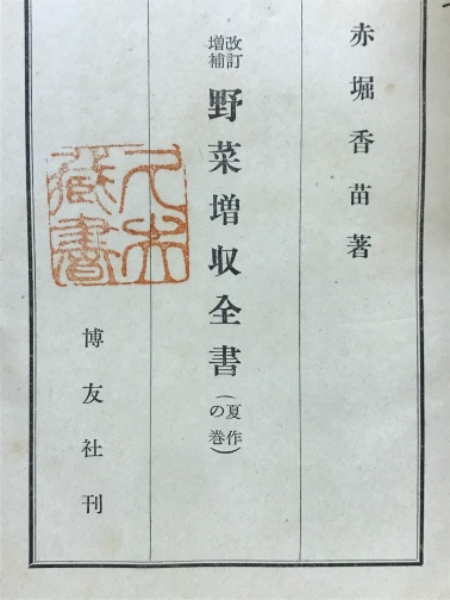 赤堀香苗著
改訂
増補
野菜増収全書
(夏作
の巻)
博友社刊
蔵書